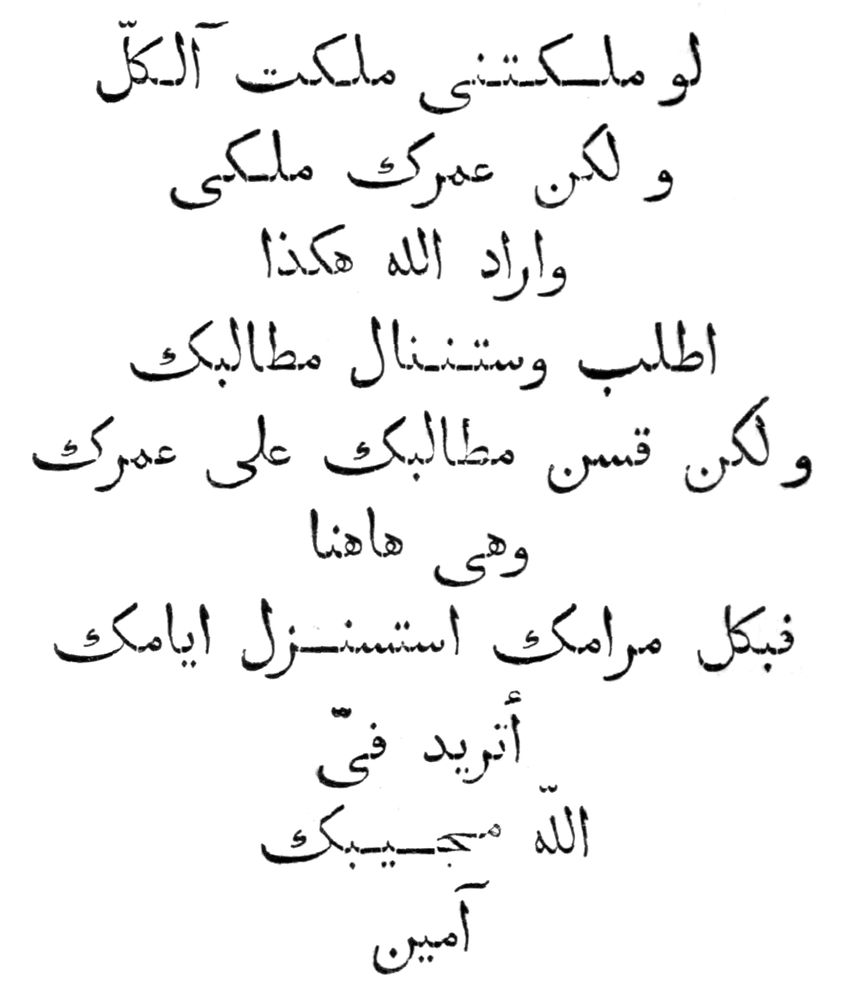 لو ملـكـتـنى ملكت آلـكلّ
و لكن عمرك ملـكى
واراد الله هكذا
اطلب وستـنـنال مطالبك
و لكن قسن مطالبك على عمرك
وهى هاهنا
فبكل مرامك استسنـزل ايامك
أتريد فىّ
اللّه مجـيـبك
آمين